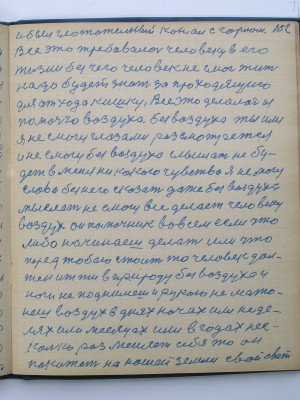 и был глотательный канал с горлом 152
Все это требовалось человеку в его
жизни без чего человек не смог жить
надо будет знать за проходящую
для отхода кишку, Все это делалось
помочью воздуха без воздуха ты или
я не смогу глазами рассмотреться
и не смогу без воздуха слышать не бу-
дет в меня ни какого чувства Я не могу
слово без него сказать даже без воздуха
мыслять не смогу все делает человеку
воздух он помочник во всем если что
либо начинаеш делать или что
перед тобою стоит то человек дол-
жен итти в природу без воздуха и
ноги не подымеш и рукою не махо-
неш воздух в днях ночах или неде-
лях или месяцах или в годах нес-
колько раз меняет себя то он
покажет на нашей земли свой свет